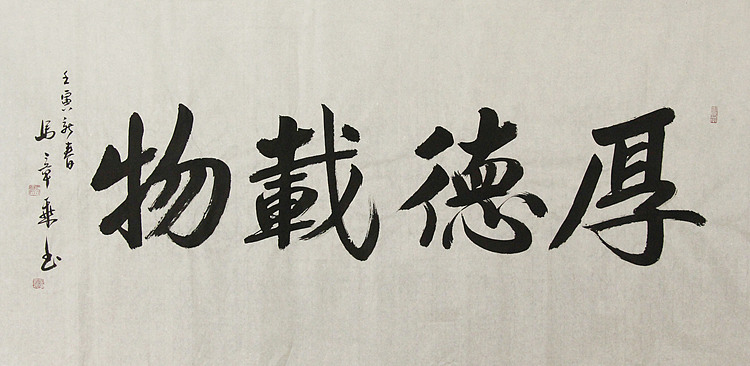 厚德載物
壬寅新春
馬章乘书